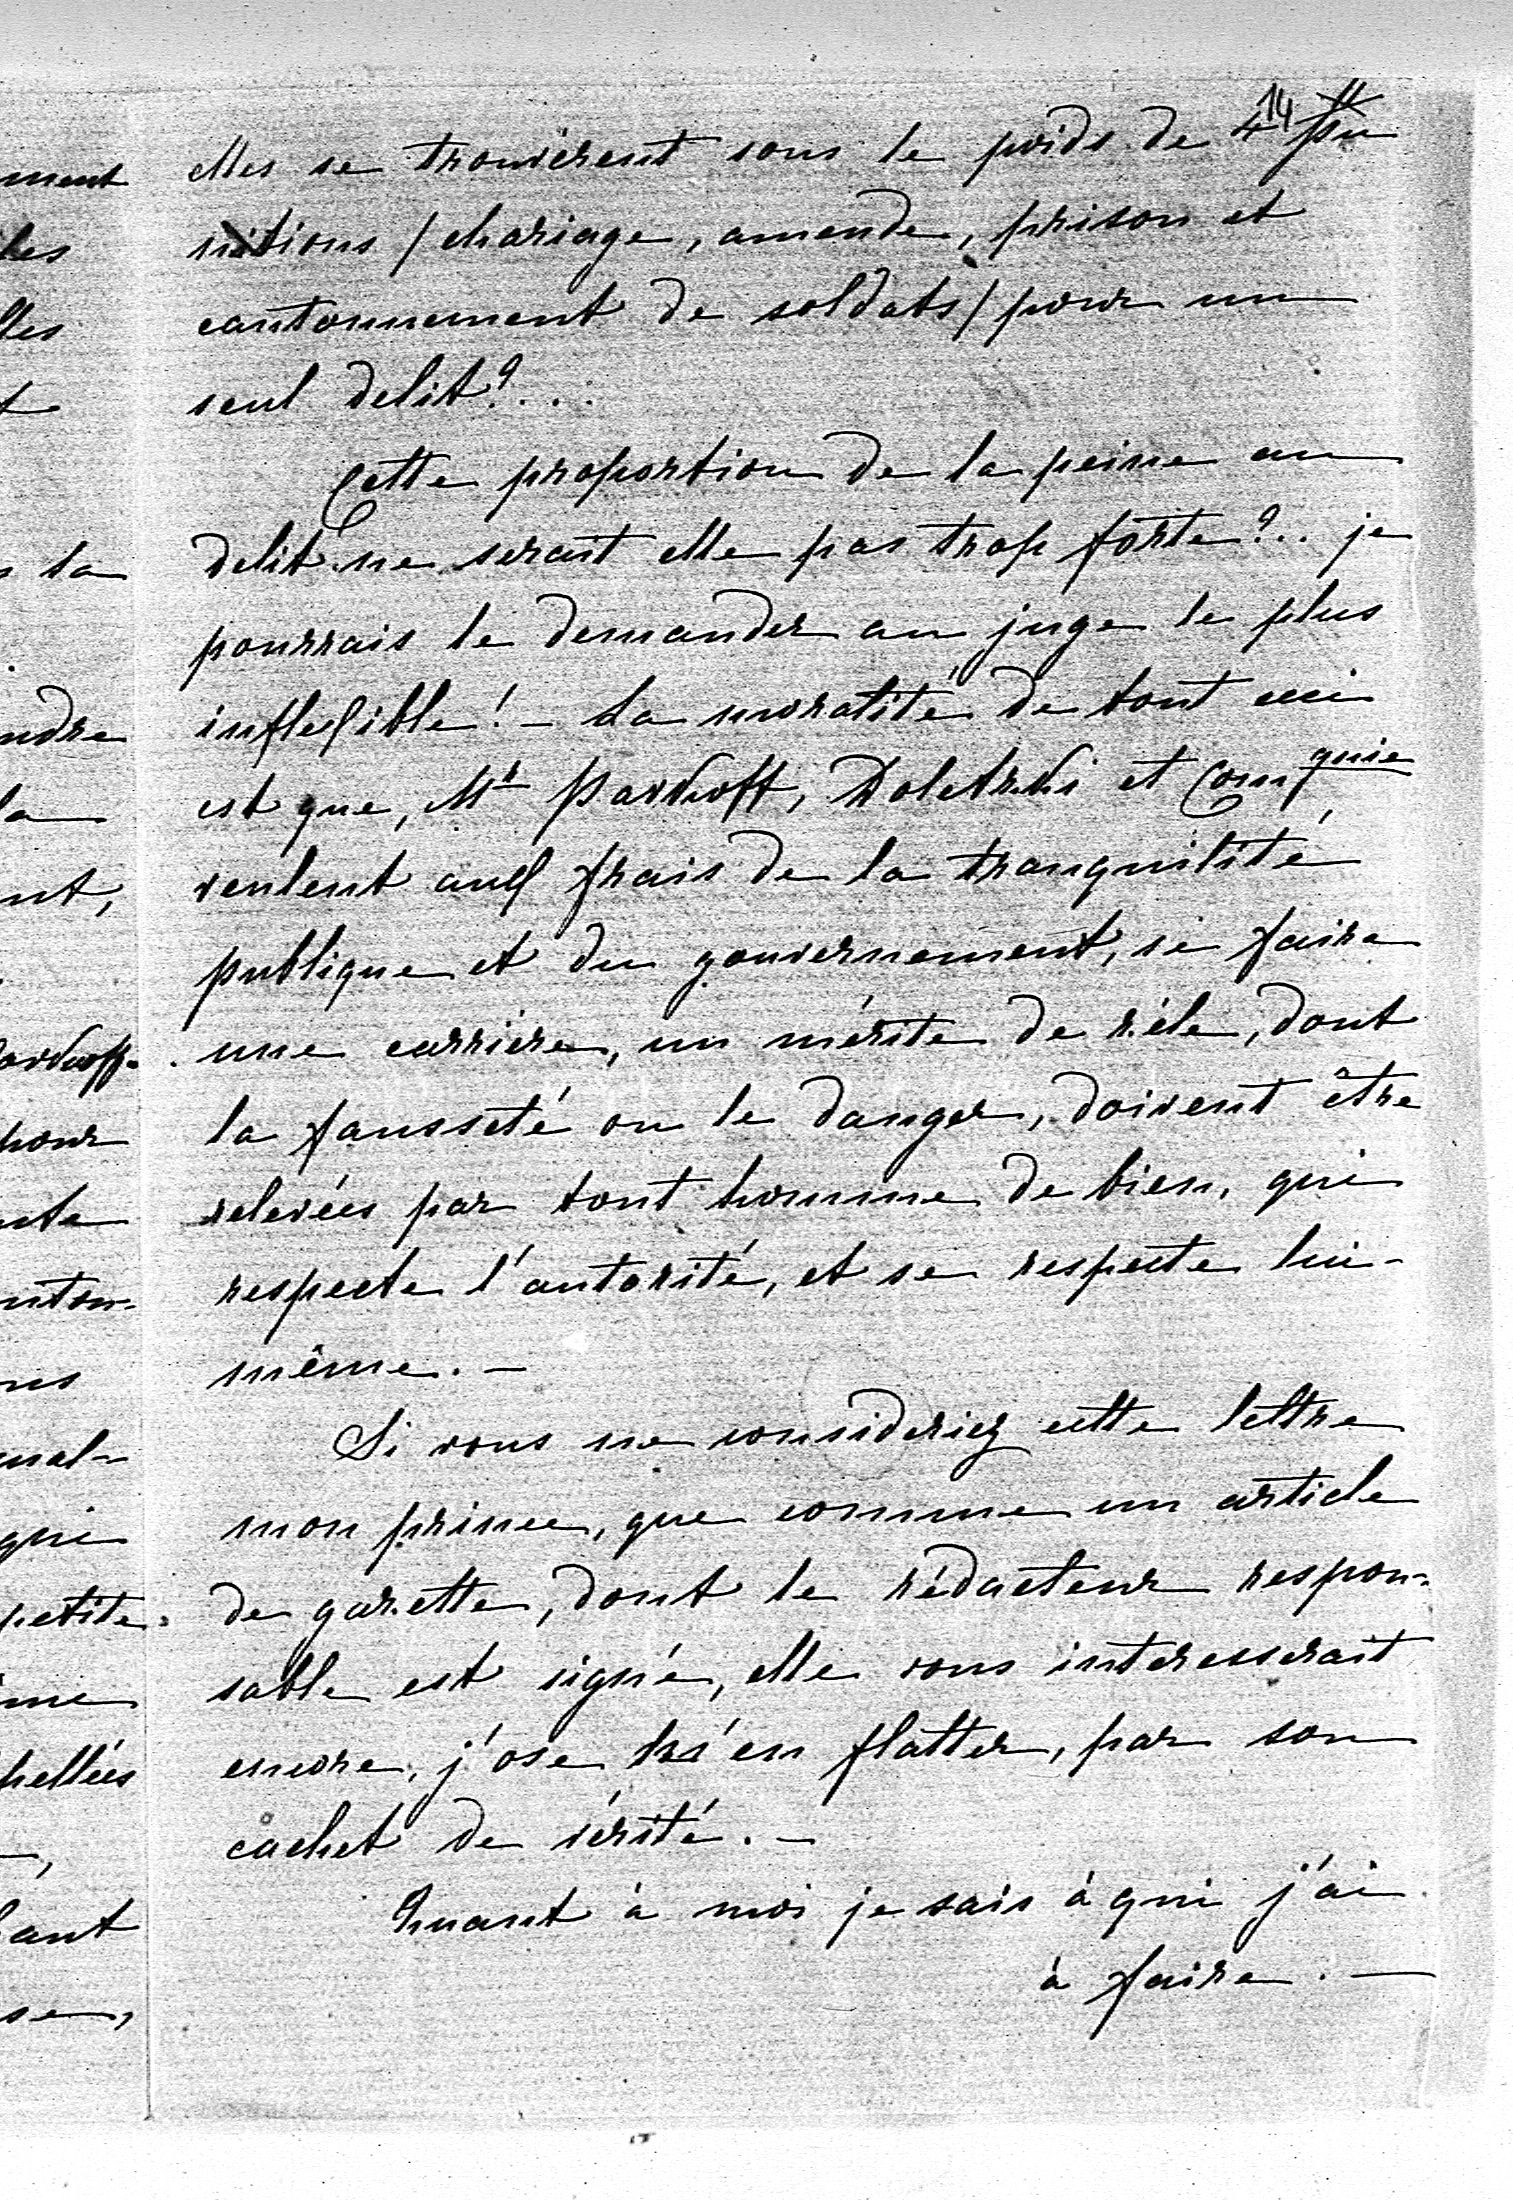 14 11
elles se trouvèrent sous le poids de 4 pu
nitions / chariage, amende, prison et
cantonnement de soldats / pour un
seul delit?...
Cette proportion de la peine au
delit ne serait elle pas trop forte?.. je
pourrais le demander au juge le plus
inflexible! – La moralité de tout ceci
est que, Mr Pavkoff, Doletzki et Compgnie
veulent aux frais de la tranquilité
publique et du gouvernement, se faire
une carrière, un mérite de zéle, dont
la fausseté ou le danger, doivent être
relevées par tout homme de bien, qui
respecte l'autorité, et se respecte lui-
même. –
Si vous ne consideriez cette lettre
mon prince, que comme un article
de gazette, dont le rédacteur respon-
sable est signé, elle vous interesserait
encore, j'ose m'en flatter, par son
cachet de vérité. –
Quant à moi je sais à qui j'ai
à faire. –
ment
les
lles
t
la
ndre
la
nt,
pour
nte
nton-
ns
nal-
qui
petite
me
pellées
lant
se,